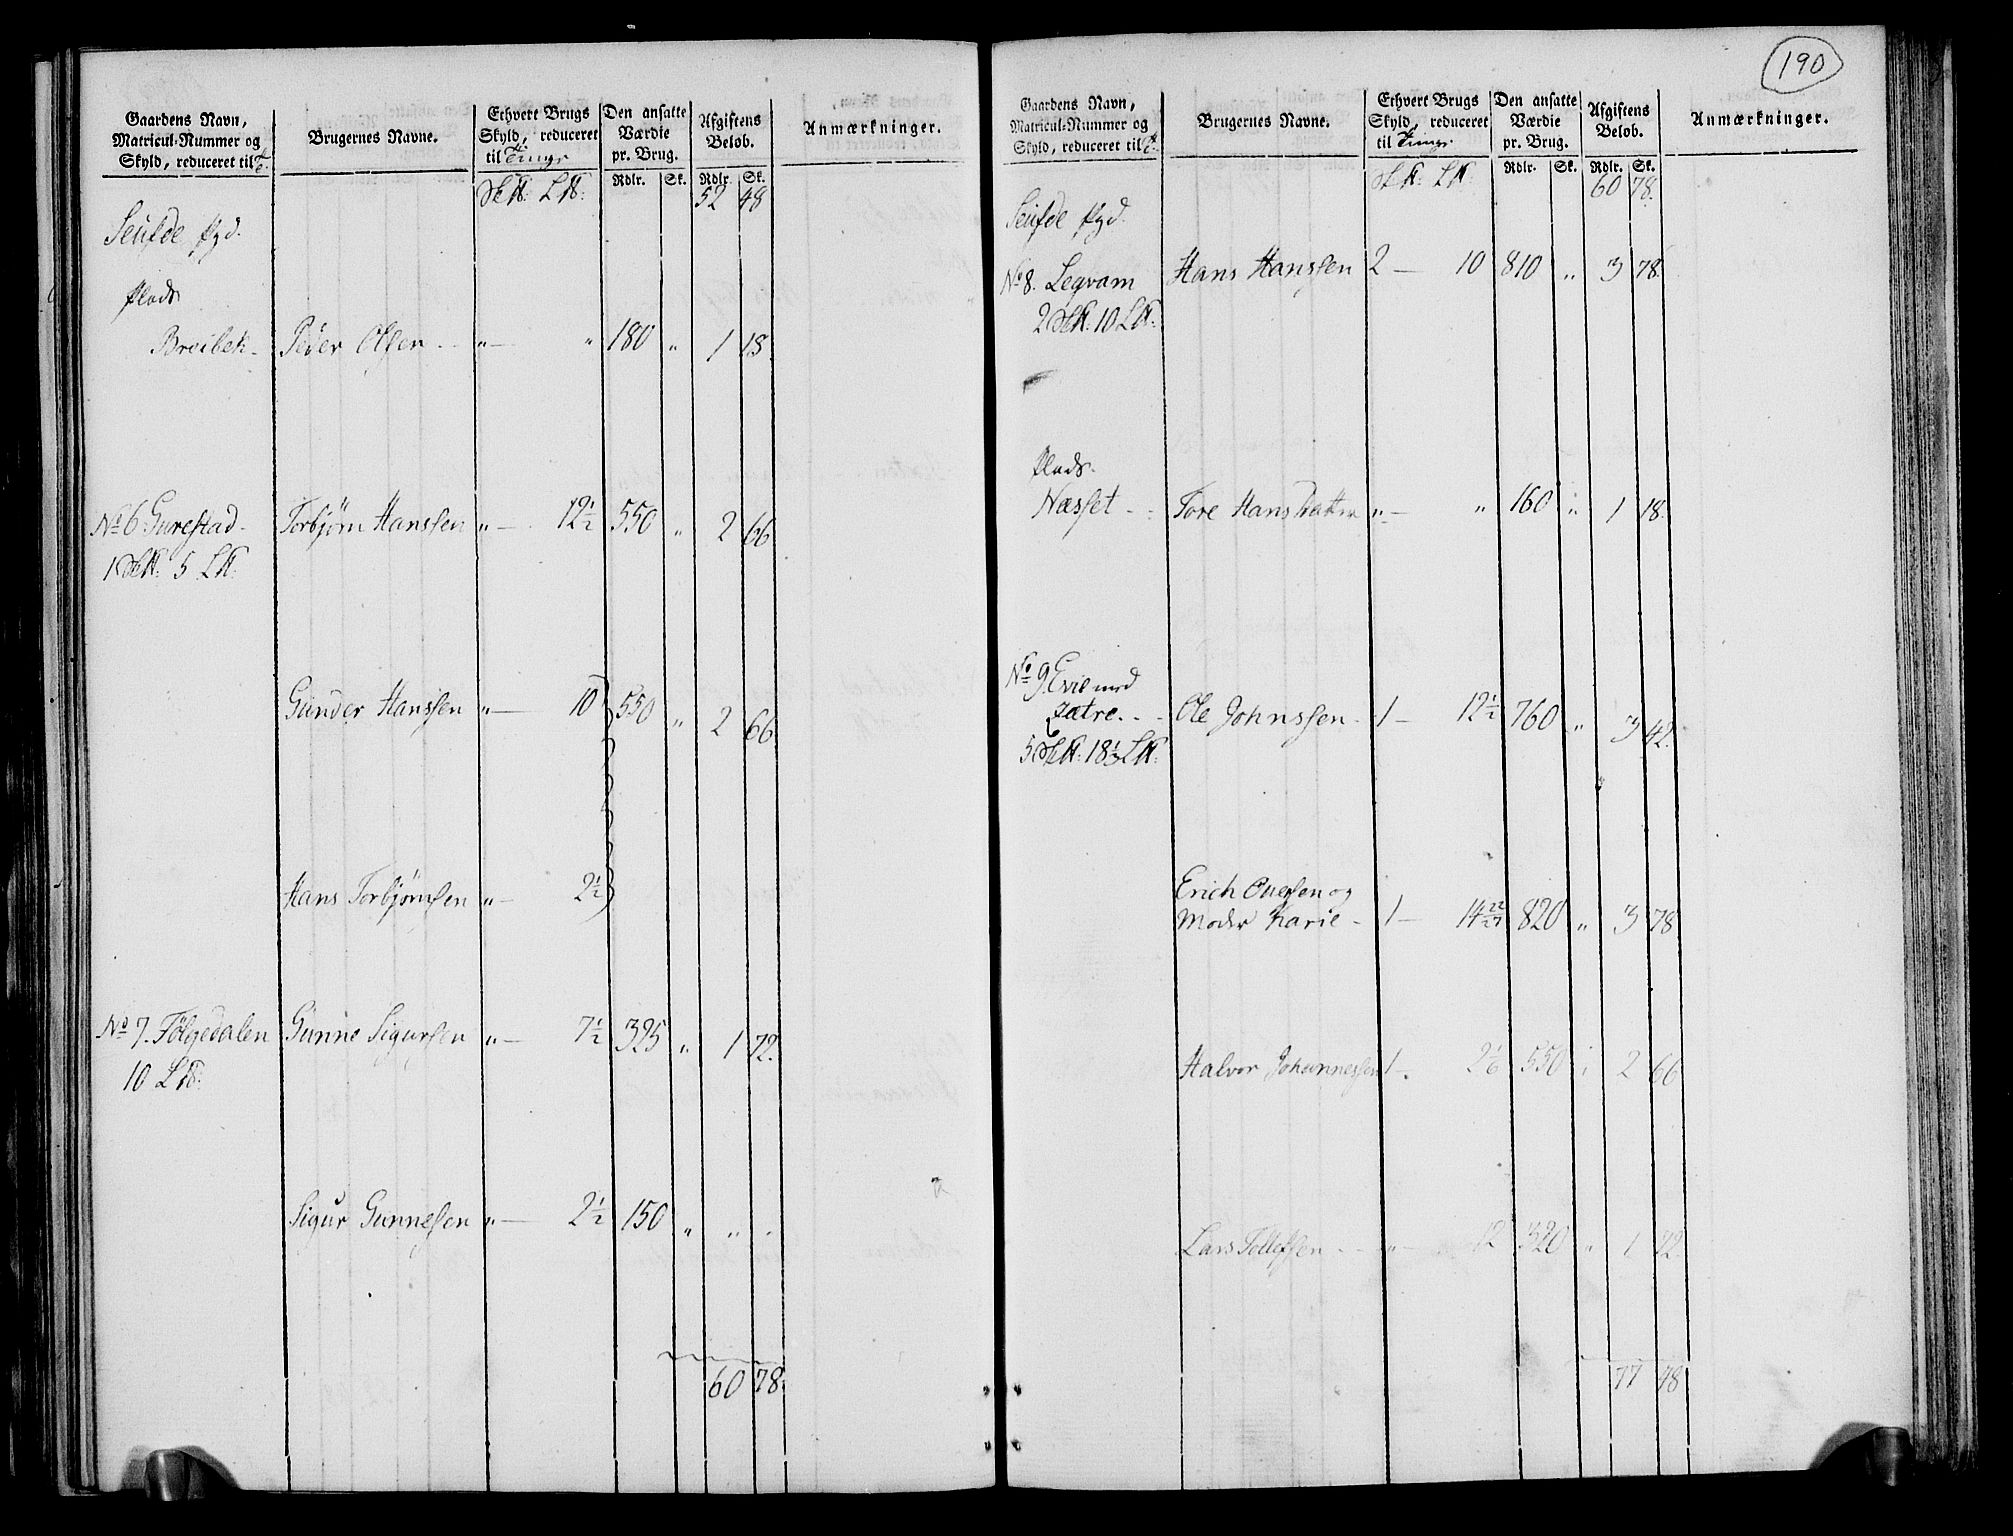 190
Gaardens Navn,
Matricul-Nummer og
Skyld, reduceret til
Brugernes Navne.
Ethvert Brugs
Skyld, reduceret
til
Den ansatte
Værdie
pr. Brug.
Afgiftens
Beløb.
Anmærkninger.
Rdlr. Sk. Rdlr. Sk.
52 48
Plads
Breibek Peder Olsen „ „ 180 „ 1 18
No 6 Gurestad Torbjørn Hanssen „ 12½ 550 „ 2 66
1 5
Gunder Hanssen „ 10 550 „ 2 66
Hans Torbjørnsen „ 2½
No 7. Følgedalen Gunne Sigursen „ 7½ 325 „ 1 72
10
Sigur Gunnesen „ 2½ 150 „ „
60 78
Gaardens Navn,
Matricul-Nummer og
Skyld, reduceret til
Brugernes Navne.
Ethvert Brugs
Skyld, reduceret
til
Den ansatte
Værdie
pr. Brug.
Afgiftens
Beløb.
Anmærkninger.
Rdlr. Sk. Rdlr. Sk.
60 78
No 8. Legvam Hans Hanssen 2 10 810 „ 3 78
2 10
Plads
Næsset Tore Hans Datter „ „ 160 „ 1 18
No 9. med
Ole Johnssen 1 12½ 760 „ 3 42
5 18⅓
Erich og
Moder Karie 1 14 22/27 820 „ 3 78
Halvor Johannessen 1 2⅙ 550 2 66
Lars Tellefsen „ 12 320 „ 1 72
77 48